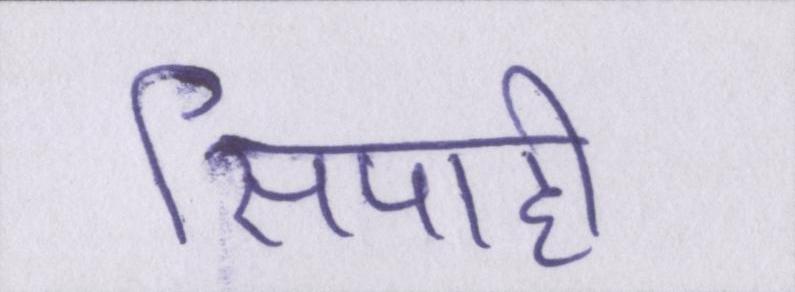 सिपाही